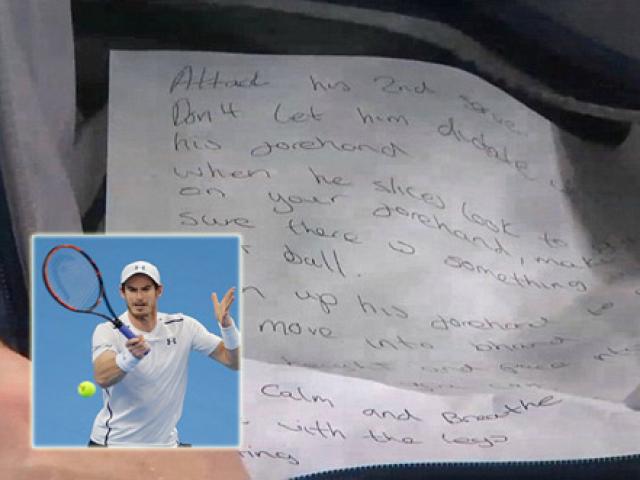 Attack his 2nd serve.
Don't let him dictate
his forehand
when he slices look to
on your forehand, make
sure there is something
ball.
up his forehand to
move into bhand
Calm and Breathe
with the legs